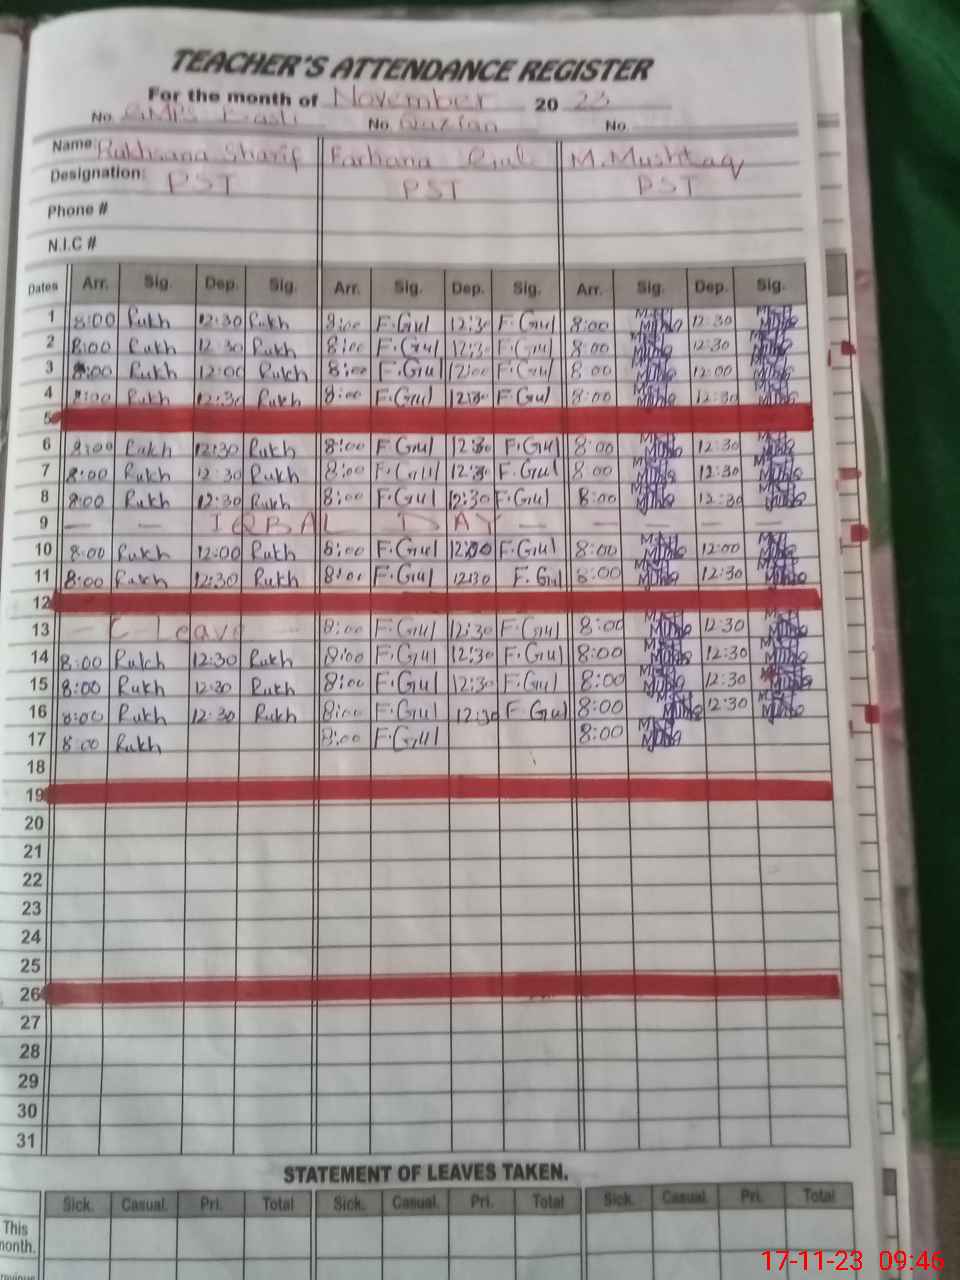 TEACHER'S ATTENDANCE REGISTER
For the month of November 20 23
No. GMPS Basti No. Qazian No.
Name: Rukhsana Sharif Farhana Gul M. Mushtaq
Designation: PST PST PST
Phone #
N.I.C #
Dates Arr. Sig. Dep. Sig. Arr. Sig. Dep. Sig. Arr. Sig. Dep. Sig.
1 8:00 Rukh 12:30 Rukh 8:00 F.Gul 12:30 F.Gul 8:00 12:30
2 8:00 Rukh 12:30 Rukh 8:00 F.Gul 12:30 F.Gul 8:00 12:30
3 8:00 Rukh 12:00 Rukh 8:00 F.Gul 12:00 F.Gul 8:00 12:00
4 8:00 Rukh 12:30 Rukh 8:00 F.Gul 12:30 F.Gul 8:00 12:30
5
6 8:00 Rukh 12:30 Rukh 8:00 F.Gul 12:30 F.Gul 8:00 12:30
7 8:00 Rukh 12:30 Rukh 8:00 F.Gul 12:30 F.Gul 8:00 12:30
8 8:00 Rukh 12:30 Rukh 8:00 F.Gul 12:30 F.Gul 8:00 12:30
9 — — IQBAL DAY — — — — —
10 8:00 Rukh 12:00 Rukh 8:00 F.Gul 12:00 F.Gul 8:00 12:00
11 8:00 Rukh 12:30 Rukh 8:00 F.Gul 12:30 F.Gul 8:00 12:30
12
13 — C Leave — 8:00 F.Gul 12:30 F.Gul 8:00 12:30
14 8:00 Rukh 12:30 Rukh 8:00 F.Gul 12:30 F.Gul 8:00 12:30
15 8:00 Rukh 12:30 Rukh 8:00 F.Gul 12:30 F.Gul 8:00 12:30
16 8:00 Rukh 12:30 Rukh 8:00 F.Gul 12:30 F.Gul 8:00 12:30
17 8:00 Rukh 8:00 F.Gul 8:00
18
19
20
21
22
23
24
25
26
27
28
29
30
31
STATEMENT OF LEAVES TAKEN.
Sick. Casual. Pri. Total Sick. Casual. Pri. Total Sick. Casual. Pri. Total
This
month.
17-11-23 09:46